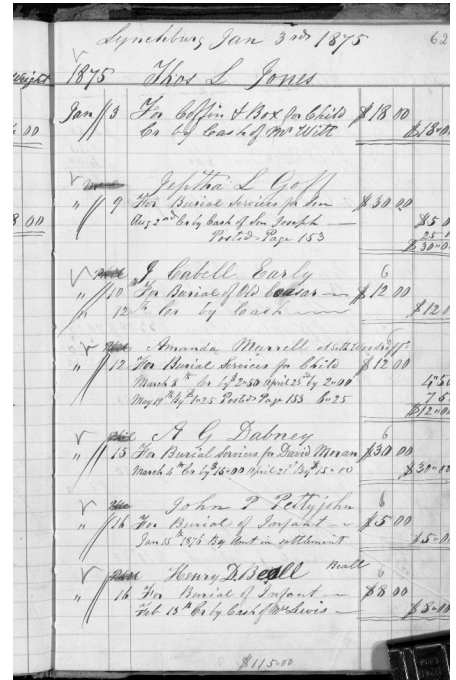 Lynchburg Jan 3rd 1875 62
Wright 1875 Thos L Jones
Jan 3 For Coffin & Box for Child $18 00
00 Cr by Cash of Mr Witt $18 00
Jeptha L Goff
" 9 For Burial Services for Son $30 00
8 00 Aug 2nd Cr by Cash of Son Joseph $5 0
Posted Page 153 25 0
$30 00
J Cabell Early 6
" 10 For Burial of Old Ceasar $12 00
" 12th Cr by Cash $12 0
Amanda Murrell 6
" 12 For Burial Services for Child $12 00
March 8th Cr by $2=50 April 23d by 2=00 4"50
May 19th By $1=25 Posted Page 153 6=25 75
$12=00
A G Dabney 6
" 15 For Burial Services for David Moran $30 00
March 4th Cr by $15=00 April 21st By $15=00 $30=00
John T Pettyjohn 6
" 16 For Burial of Infant $5 00
Jan 15th 1876 By Amt in settlement $5=00
Henry D. Beall Beall 6
" 16 For Burial of Infant $8 00
Feb 13th Cr by Cash of Mr Lewis $8=00
$115=00